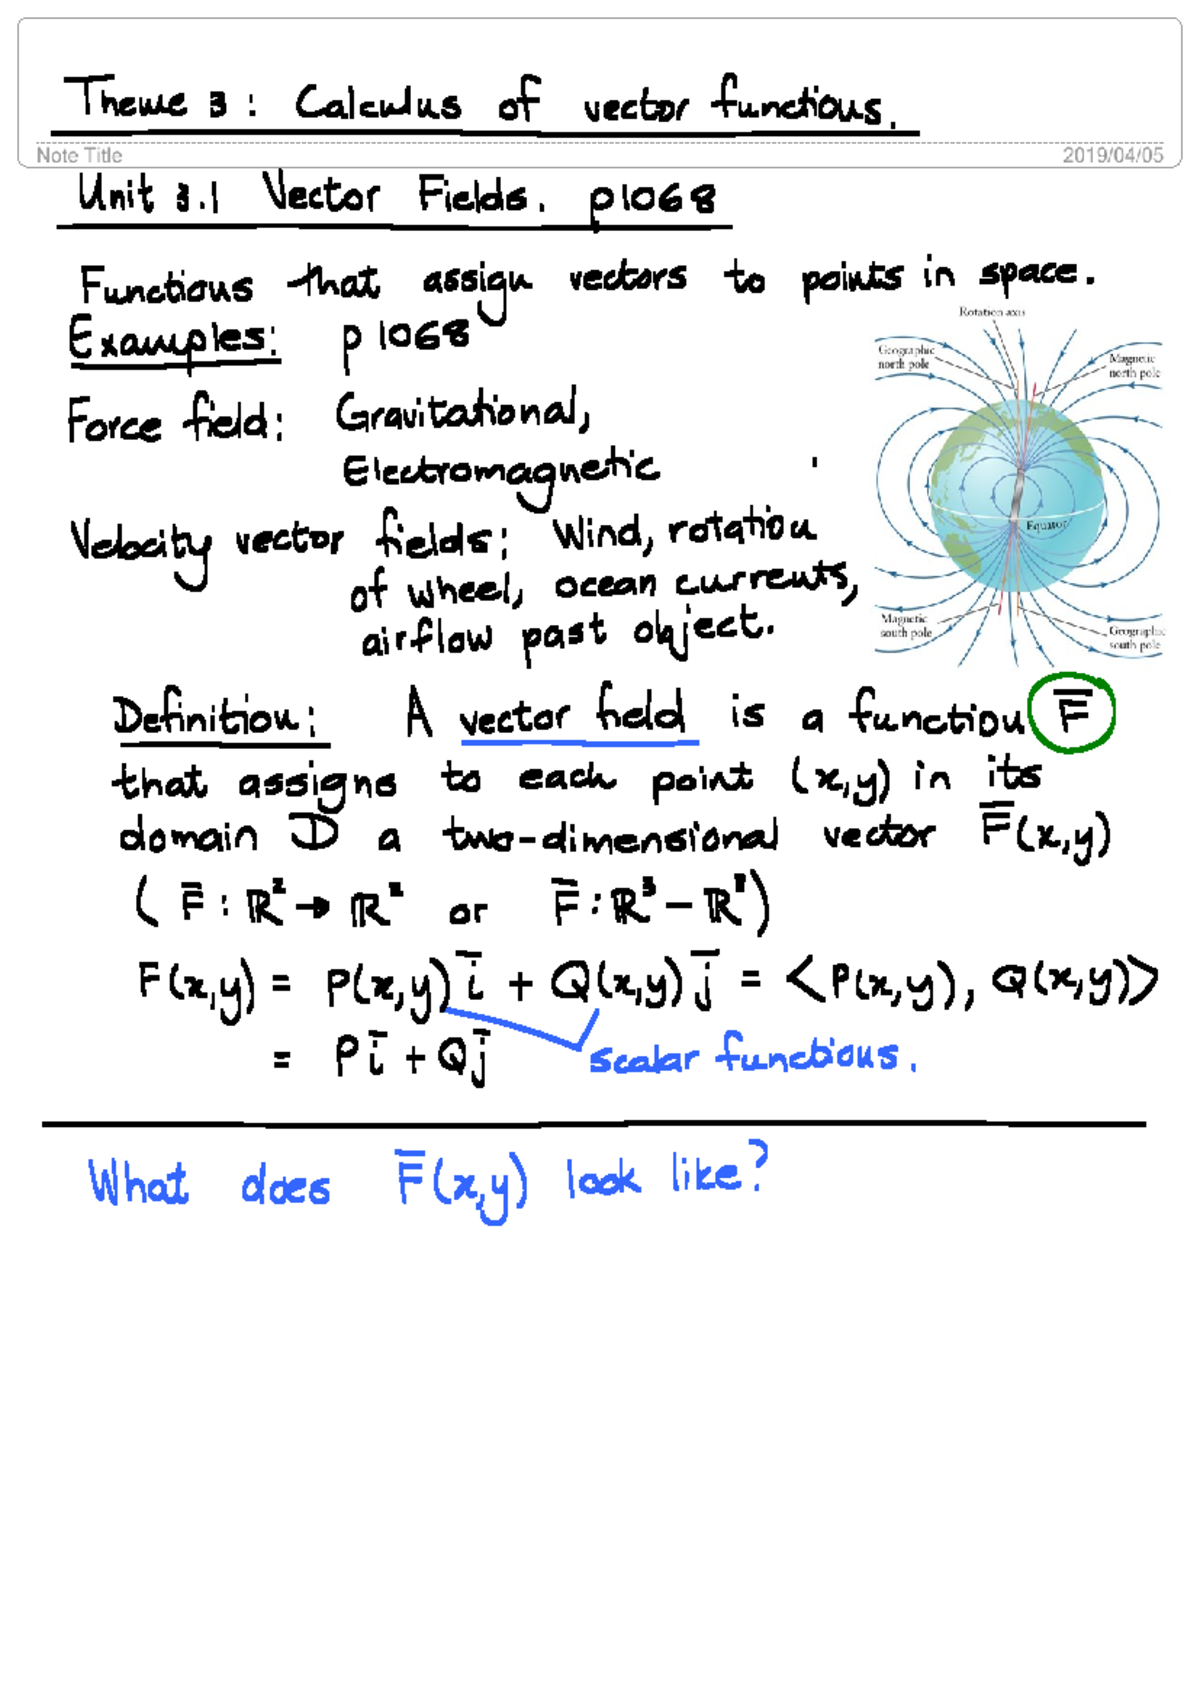 Theme 3 : Calculus of vector functions.
Note Title
2019/04/05
Unit 3.1 Vector Fields. p1068
Functions that assign vectors to points in space.
Examples: p 1068
Force field: Gravitational,
Electromagnetic
Velocity vector fields: Wind, rotation
of wheel, ocean currents,
airflow past object.
Rotation axis
Geographic
north pole
Magnetic
north pole
Equator
Magnetic
south pole
Geographic
south pole
Definition: A vector field is a function F̅
that assigns to each point (x,y) in its
domain D a two-dimensional vector F̅(x,y)
( F̅ : ℝ² → ℝ² or F̅ : ℝ³ – ℝ³)
F(x,y) = P(x,y) i̅ + Q(x,y) j̅ = <P(x,y), Q(x,y)>
= P i̅ + Q j̅
scalar functions.
What does F̅(x,y) look like?